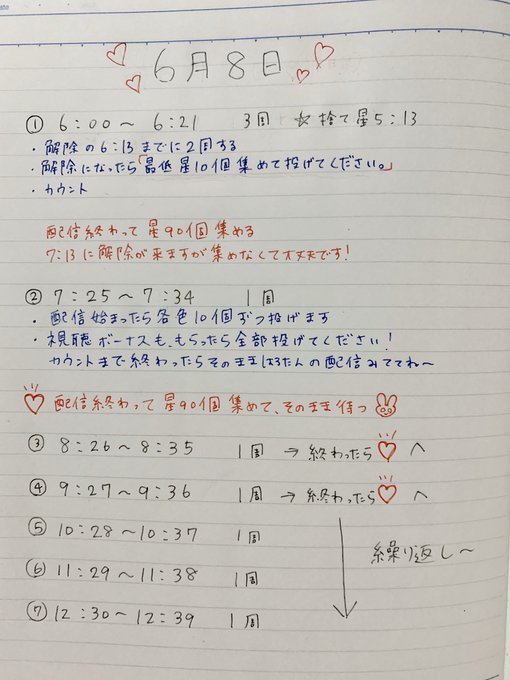 6月8日
① 6:00〜6:21 3周 ☆捨て星5:13
・解除の6:13までに2周する
・解除になったら「最低星10個集めて投げてください。」
・カウント
配信終わって星90個集める
7:13に解除が来ますが集めなくて大丈夫です!
② 7:25〜7:34 1周
・配信始まったら各色10個ずつ投げます
・視聴ボーナスももらったら全部投げてください!
カウントまで終わったらそのままはるたんの配信みててね〜
♡ 配信終わって星90個集めて、そのまま待つ
③ 8:26〜8:35 1周 → 終わったら♡へ
④ 9:27〜9:36 1周 → 終わったら♡へ
⑤ 10:28〜10:37 1周
繰り返し〜
⑥ 11:29〜11:38 1周
⑦ 12:30〜12:39 1周